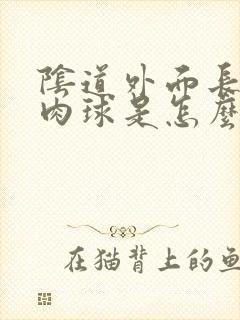 陰道外面長
肉球是怎麼
在猫背上的鱼